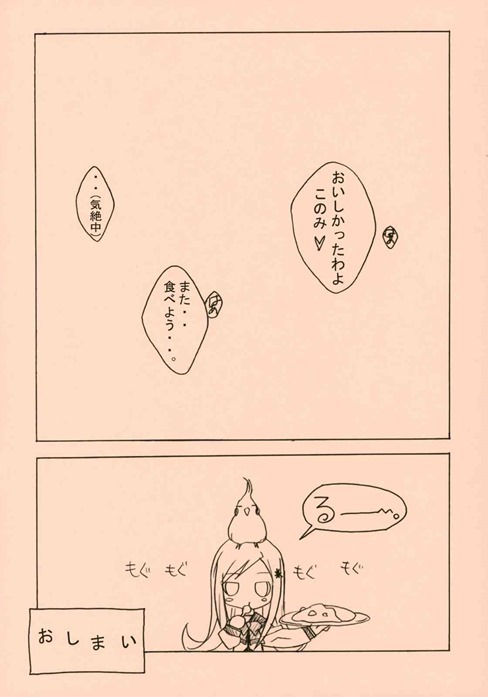 おいしかったわよ
このみ♥
はぁ
また・・
食べよう・・・。
はぁ
・・(気絶中)
るーーー。
もぐ もぐ もぐ もぐ
おしまい